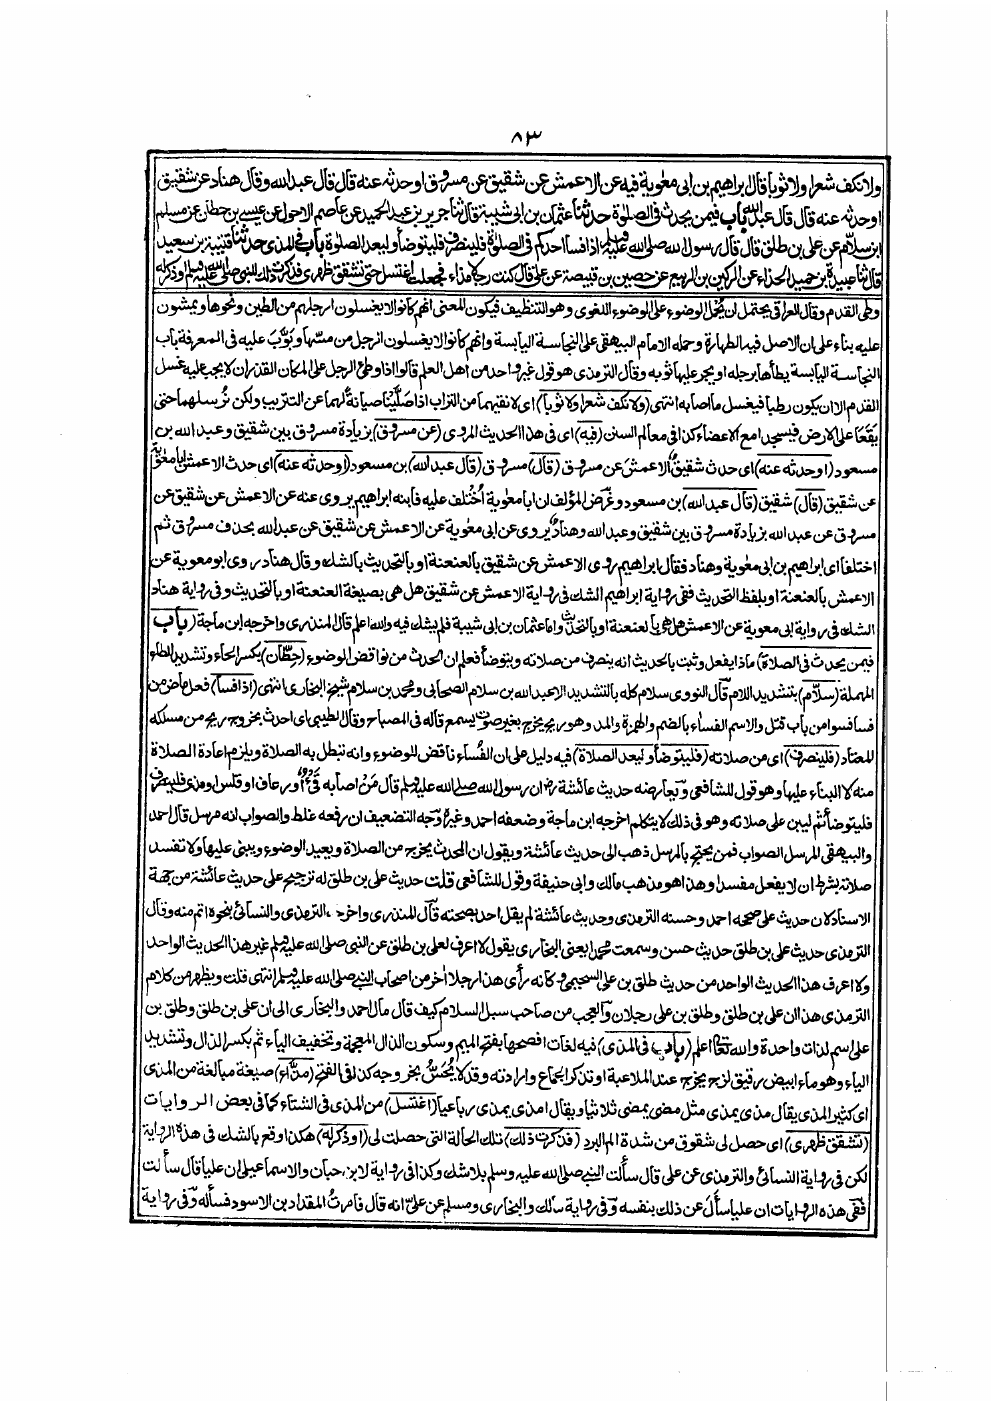 ٨٣
ولا نكف شعرا ولا ثوبا قال ابراهيم بن ابى معوية فيه عن الاعمش عن شقيق عن مسروق او حدثه عنه قال قال عبد الله وقال هناد عن شقيق
او حدثه عنه قال قال عبد الله باب فيمن يحدث فى الصلوة حدثنا عثمان بن ابى شيبة قال ثنا جرير بن عبد الحميد عن عاصم الاحول عن عيسى بن حطان عن مسلم
ابن سلام عن على بن طلق قال قال رسول الله صلى الله عليه وسلم اذا فسا احدكم فى الصلوة فلينصرف فليتوضأ وليعد الصلوة باب فى المذى حدثنا قتيبة بن سعيد
قال ثنا عبيدة بن حميد الحذاء عن الركين بن الربيع عن حصين بن قبيصة عن على قال كنت رجلا مذاء فجعلت اغتسل حتى تشقق ظهرى فذكرت ذلك للنبى صلى الله عليه وسلم او ذكر له
وطى القدم وقال العراقى يحتمل ان يحمل الوضوء على الوضوء اللغوى وهو التنظيف فيكون المعنى انهم كانوا لا يغسلون ارجلهم من الطين ونحوها ويمشون
عليه بناء على ان الاصل فيه الطهارة وحمله الامام البيهقى على النجاسة اليابسة وانهم كانوا لا يغسلون الرجل من مسها وبوب عليه فى المعرفة باب
النجاسة اليابسة يطأها برجله او يجر عليها ثوبه وقال الترمذى هو قول غير واحد من اهل العلم قالوا اذا وطئ الرجل على المكان القذر ان لا يجب عليه غسل
القدم الا ان يكون رطبا فيغسل ما اصابه انتهى (ولا نكف شعرا ولا ثوبا) اى لا نقيهما من التراب اذا صلينا صيانة لهما عن التتريب ولكن نرسلهما حتى
يقعا على الارض فيسجدا مع الاعضاء كذا فى معالم السنن (فيه) اى فى هذا الحديث المروى (عن مسروق) بزيادة مسروق بين شقيق وعبد الله بن
مسعود (او حدثه عنه) اى حدث شقيق الاعمش عن مسروق (قال) مسروق (قال عبد الله) بن مسعود (او حدثه عنه) اى حدث الاعمش ابا معوية
عن شقيق (قال) شقيق (قال عبد الله) بن مسعود وغرض المؤلف ان ابا معوية اختلف عليه فابنه ابراهيم يروى عنه عن الاعمش عن شقيق عن
مسروق عن عبد الله بزيادة مسروق بين شقيق وعبد الله وهناد يروى عن ابى معوية عن الاعمش عن شقيق عن عبد الله بحذف مسروق ثم
اختلفا اى ابراهيم بن ابى معوية وهناد فقال ابراهيم روى الاعمش عن شقيق بالعنعنة او بالتحديث بالشك وقال هناد روى ابو معوية عن
الاعمش بالعنعنة او بلفظ التحديث ففى رواية ابراهيم الشك فى رواية الاعمش عن شقيق هل هى بصيغة العنعنة او بالتحديث وفى رواية هناد
الشك فى رواية ابى معوية عن الاعمش هل هى بالعنعنة او بالتحديث واما عثمان بن ابى شيبة فلم يشك فيه والله اعلم قال المنذرى واخرجه ابن ماجة (باب
فيمن يحدث فى الصلاة) ماذا يفعل وثبت بالحديث انه ينصرف من صلاته ويتوضأ فعلم ان الحدث من نواقض الوضوء (حطان) بكسر الحاء وتشديد الطاء
المهملة (سلام) بتشديد اللام قال النووى سلام كله بالتشديد الا عبد الله بن سلام الصحابى ومحمد بن سلام شيخ البخارى انتهى (اذا فسا) فعل ماض من
فسا فسوا من باب قتل والاسم الفساء بالضم والهمزة والمد وهو ريح يخرج بغير صوت يسمع قاله فى المصباح وقال الطيبى اى احدث بخروج ريح من مسلكه
المعتاد (فلينصرف) اى من صلاته (فليتوضأ وليعد الصلاة) فيه دليل على ان الفساء ناقض للوضوء وانه تبطل به الصلاة ويلزم اعادة الصلاة
منه لا البناء عليها وهو قول للشافعى ويعارضه حديث عائشة رض ان رسول الله صلى الله عليه وسلم قال من اصابه قئ او رعاف او قلس او مذى فلينصرف
فليتوضأ ثم ليبن على صلاته وهو فى ذلك لا يتكلم اخرجه ابن ماجة وضعفه احمد وغيره وجه التضعيف ان رفعه غلط والصواب انه مرسل قال احمد
والبيهقى المرسل الصواب فمن يحتج بالمرسل ذهب الى حديث عائشة ويقول ان المحدث يخرج من الصلاة ويعيد الوضوء ويبنى عليها ولا تفسد
صلاته بشرط ان لا يفعل مفسدا وهذا هو مذهب مالك وابى حنيفة وقول للشافعى قلت حديث على بن طلق له ترجيح على حديث عائشة من جهة
الاسناد لان حديث على صححه احمد وحسنه الترمذى وحديث عائشة لم يقل احد بصحته قال المنذرى واخرجه الترمذى والنسائى بنحوه اتم منه وقال
الترمذى حديث على بن طلق حديث حسن وسمعت محمدا يعنى البخارى يقول لا اعرف لعلى بن طلق عن النبى صلى الله عليه وسلم غير هذا الحديث الواحد
ولا اعرف هذا الحديث الواحد من حديث طلق بن على السحيمى وكانه رأى هذا رجلا آخر من اصحاب النبى صلى الله عليه وسلم انتهى قلت ويظهر من كلام
الترمذى هذا ان على بن طلق وطلق بن على رجلان والعجب من صاحب سبل السلام كيف قال مال احمد والبخارى الى ان على بن طلق وطلق بن
على اسم لذات واحدة والله تعالى اعلم (باب فى المذى) فيه لغات افصحها بفتح الميم وسكون الذال المعجمة وتخفيف الياء ثم بكسر الذال وتشديد
الياء وهو ماء ابيض رقيق لزج يخرج عند الملاعبة او تذكر الجماع وارادته وقد لا يحس بخروجه كذا فى الفتح (مذاء) صيغة مبالغة من المذى
اى كثير المذى يقال مذى يمذى مثل مضى يمضى ثلاثيا ويقال امذى يمذى رباعيا (اغتسل) من المذى فى الشتاء كما فى بعض الروايات
(تشقق ظهرى) اى حصل لى شقوق من شدة الم البرد (فذكرت ذلك) تلك الحالة التى حصلت لى (او ذكر له) هكذا وقع بالشك فى هذه الرواية
لكن فى رواية النسائى والترمذى عن على قال سألت النبى صلى الله عليه وسلم بلا شك وكذا فى رواية لابن حبان والاسماعيلى ان عليا قال سألت
ففى هذه الروايات ان عليا سأل عن ذلك بنفسه وفى رواية مالك والبخارى ومسلم عن على انه قال فامرت المقداد بن الاسود فسأله وفى رواية